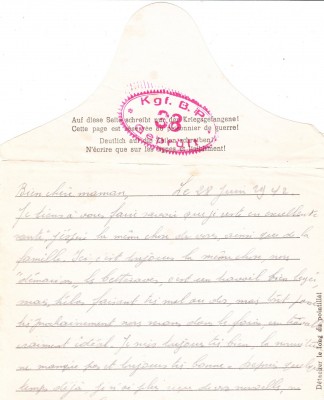 Kgf. B.P.
38
Geprüft
Auf diese Seite schreibt nur der Kriegsgefangene!
Cette page est réservée au prisonnier de guerre!
Deutlich auf die Zeilen schreiben!
N'écrire que sur les lignes et lisiblement!
Bien chère maman, Le 28 Juin 1942
Je tiens à vous faire savoir que je suis en excellente
santé j'espère la même chose de vous, ainsi que de la
famille. Ici, c'est toujours la même chose, nous
betterave, c'est un travail bien
mais, hélas faisant très mal au dos, mais tout
très prochainement nous irons dans le foin, un travail
vraiment idéal. Je suis toujours très bien, la
ne manque pas et toujours très bonne, depuis
temps déjà, je n'ai plus reçu de vos nouvelles,
Détacher le long du pointillé!